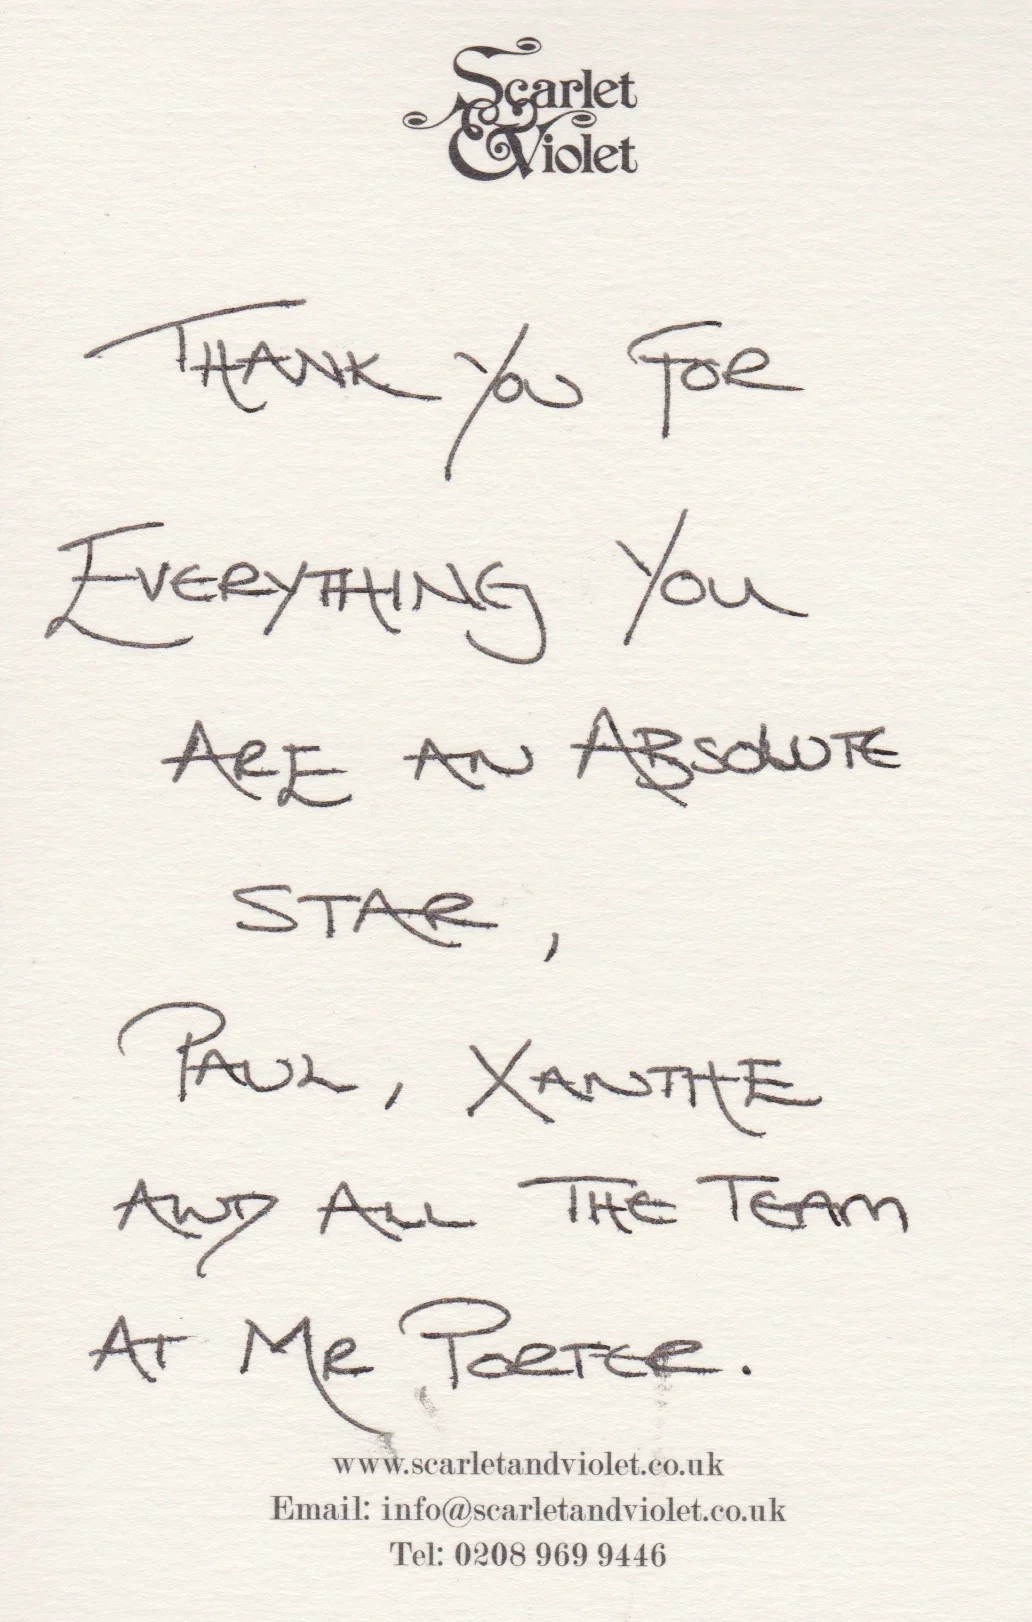 Scarlet
& Violet
THANK YOU FOR
EVERYTHING YOU
ARE AN ABSOLUTE
STAR,
PAUL, XANTHE
AND ALL THE TEAM
AT MR PORTER.
www.scarletandviolet.co.uk
Email: info@scarletandviolet.co.uk
Tel: 0208 969 9446